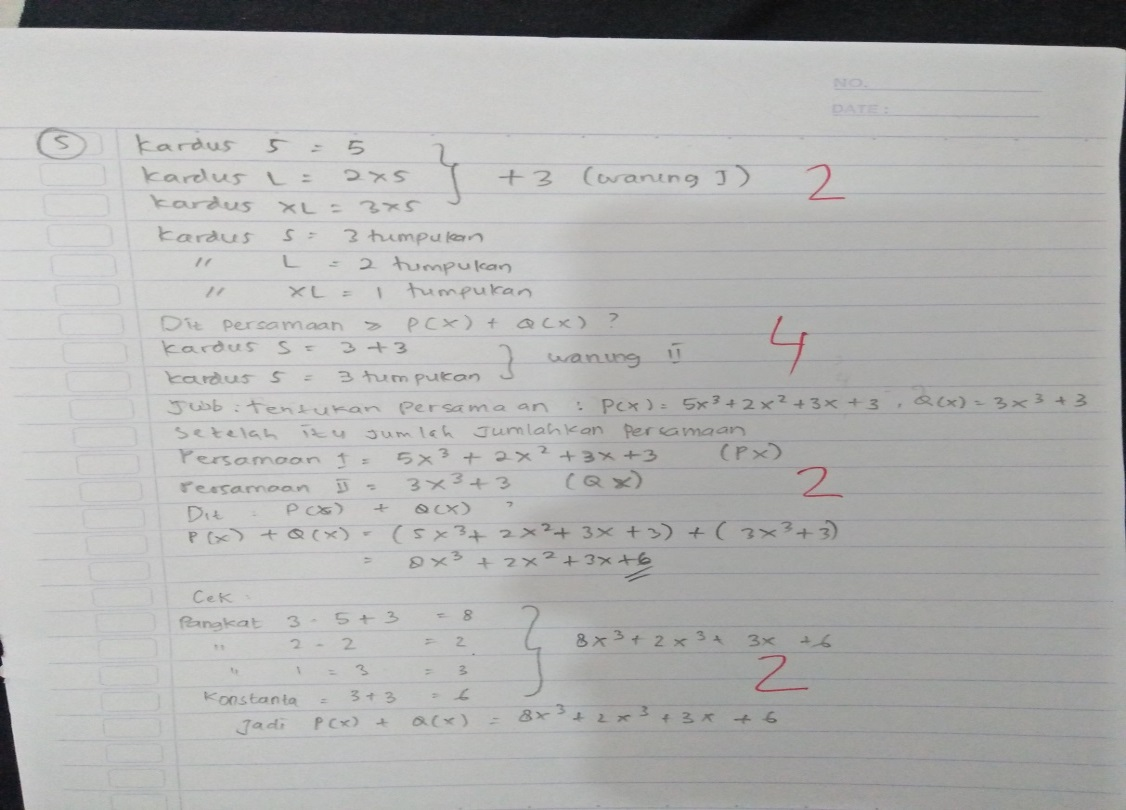 NO.
DATE:
(5) Kardus S = 5
Kardus L = 2 x 5 } + 3 (waning I) 2
Kardus XL = 3 x 5
Kardus S = 3 tumpukan
" L = 2 tumpukan
" XL = 1 tumpukan
Dit persamaan > P(x) + Q(x) ?
Kardus S = 3 + 3 } waning II 4
Kardus S = 3 tumpukan
Jwb : tentukan persamaan : P(x) = 5x³ + 2x² + 3x + 3 , Q(x) = 3x³ + 3
Setelah itu jumlah jumlahkan persamaan
Persamaan I = 5x³ + 2x² + 3x + 3 (Px)
Persamaan II = 3x³ + 3 (Qx) 2
Dit : P(x) + Q(x) ?
P(x) + Q(x) = (5x³ + 2x² + 3x + 3) + (3x³ + 3)
= 8x³ + 2x² + 3x + 6
Cek .
Pangkat 3 . 5 + 3 = 8
" 2 - 2 = 2 } 8x³ + 2x³ + 3x + 6
" 1 = 3 = 3 2
Konstanta = 3 + 3 = 6
Jadi P(x) + Q(x) = 8x³ + 2x³ + 3x + 6